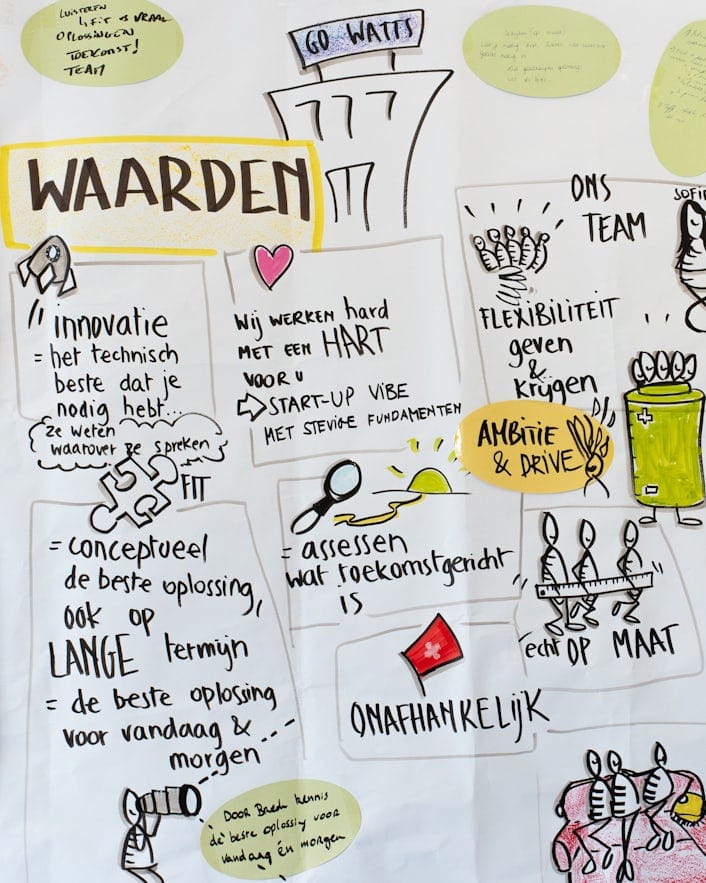 LUISTEREN
OPLOSSINGEN
TOEKOMST!
TEAM
GO WATTS
WAARDEN
innovatie
= het technisch
beste dat je
nodig hebt...
ze weten
waarover ze spreken
Wij WERKEN hard
MET EEN HART
VOOR U
START-UP ViBE
MET STEVIGE FUNDAMENTEN
ONS
TEAM
SOFIE
FLEXIBILITEIT
geven
&
krijgen
AMBiTIE
& DRIVE
FIT
= conceptueel
de beste oplossing,
óók op
LANGE termijn
= de beste oplossing
voor vandaag &
morgen
= assessen
wat toekomstgericht
is
echt OP MAAT
ONAFHANKELIJK
Door Brede kennis
de beste oplossing voor
vandaag én morgen